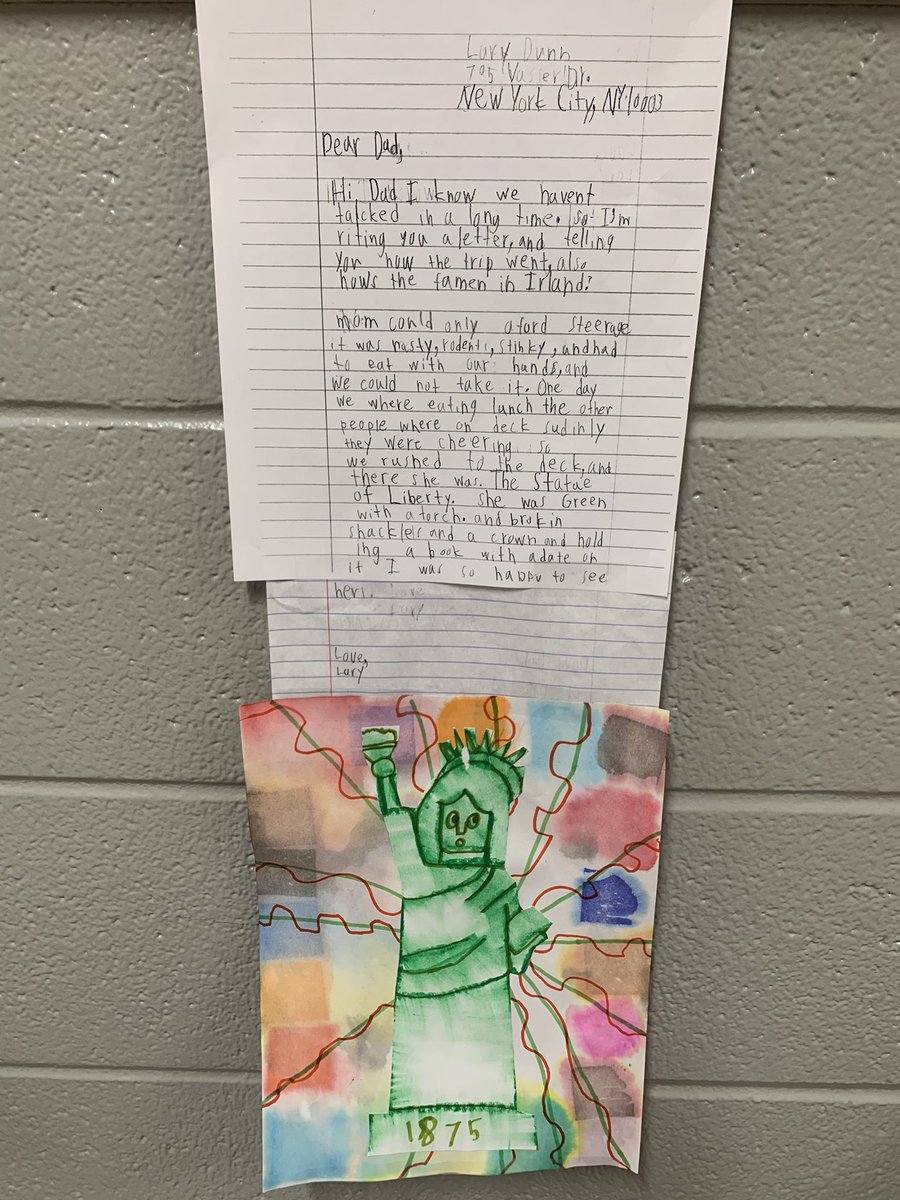 Lary Dunn
795 Vasser Dr.
New York City, NY 10003
Dear Dad,
Hi Dad I know we havent
talcked in a long time. so I'm
riting you a letter, and telling
you how the trip went, also
hows the famen in Irland?
mom could only aford steerage
it was nasty, rodents, stinky, and had
to eat with our hands, and
we could not take it. One day
we where eating lunch the other
people where on deck sudinly
they were cheering. so
we rushed to the deck, and
there she was. The Statue
of Liberty. she was Green
with a torch. and brokin
shackles and a crown and hold
ing a book with a date on
it I was so happy to see
her. Love
Lary
Love,
Lary
1875